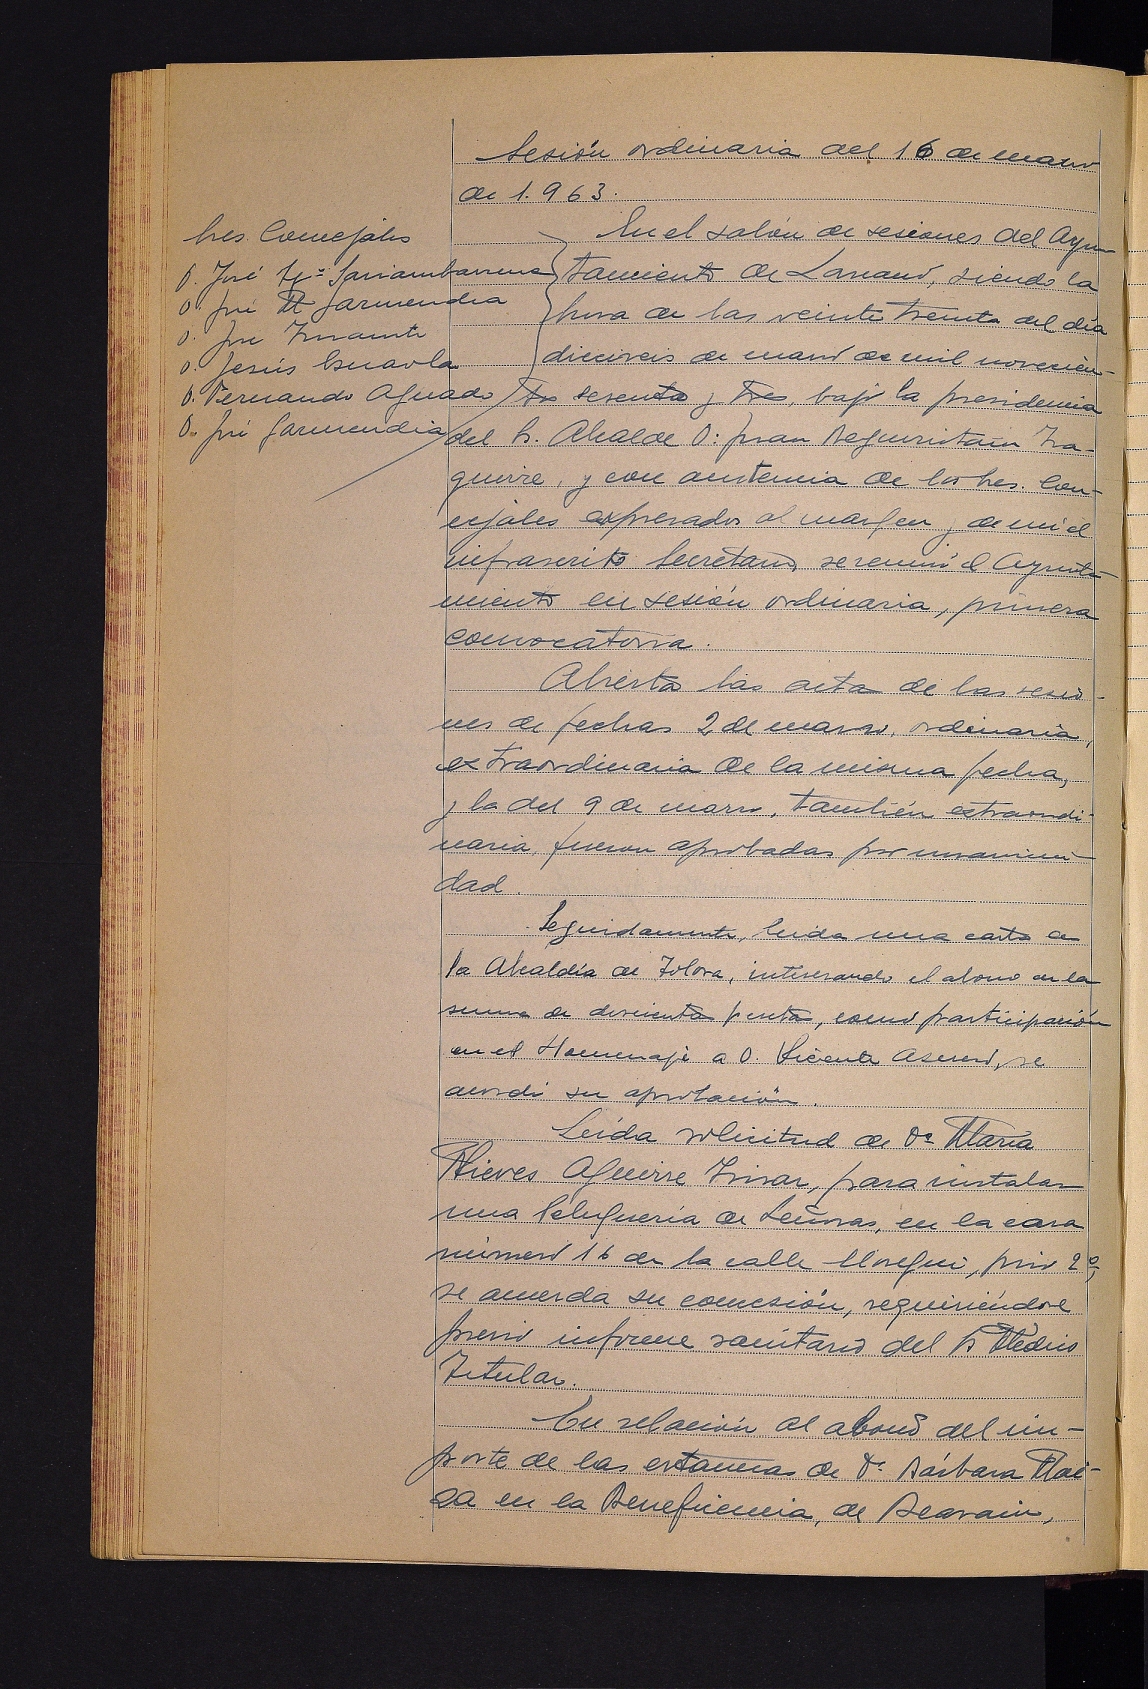 Sesión ordinaria del 16 de marzo
de 1.963.
Sres. Concejales
D. José Mª Sarriambarrena
D. José M. Garmendia
D. José Insausti
D. Jesús Esnaola
D. Fernando Aguado
D. José Garmendia
En el salón de sesiones del Ayun
tamiento de Lazcano, siendo la
hora de las veinte treinta del día
dieciseis de marzo de mil novecien-
tos sesenta y tres, bajo la presidencia
del Sr. Alcalde D. Juan Beguiristain Iza-
guirre, y con asistencia de los Sres. Con-
cejales expresados al margen y de mi el
infrascrito Secretario, se reunió el Ayunta-
miento en sesión ordinaria, primera
convocatoria.
Abierta las acta de las sesio-
nes de fechas 2 de marzo, ordinaria,
extraordinaria de la misma fecha,
y la del 9 de marzo, también extraordi-
naria, fueron aprobadas por unanimi-
dad.
Seguidamente, leida una carta de
la Alcaldía de Tolosa, interesando el abono de la
suma de doscientas pesetas, como participación
en el Homenaje a D. Vicente Asensio, se
acordó su aprobación.
Leída solicitud de Dª María
Nieves Aguirre, para instalar
una Peluquería de Señoras, en la casa
número 16 de la calle, piso 2º,
se acuerda su concesión, requiriéndose
previo informe sanitario del Sr Médico
Titular.
En relación al abono del im-
porte de las estancias de Dª Bárbara
en la Beneficencia, de Beasain,